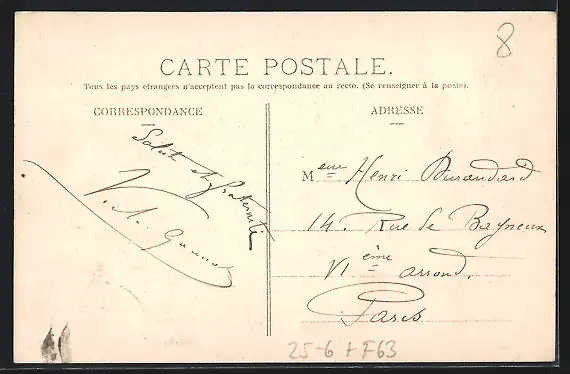 8
CARTE POSTALE.
Tous les pays étrangers n'acceptent pas la correspondance au recto. (Se renseigner à la poste).
CORRESPONDANCE
ADRESSE
Salut et fraternité
V. A.
Meur Henri Durandard
14. Rue de Bagneux
VIème arrond.
Paris
25-6 + F63